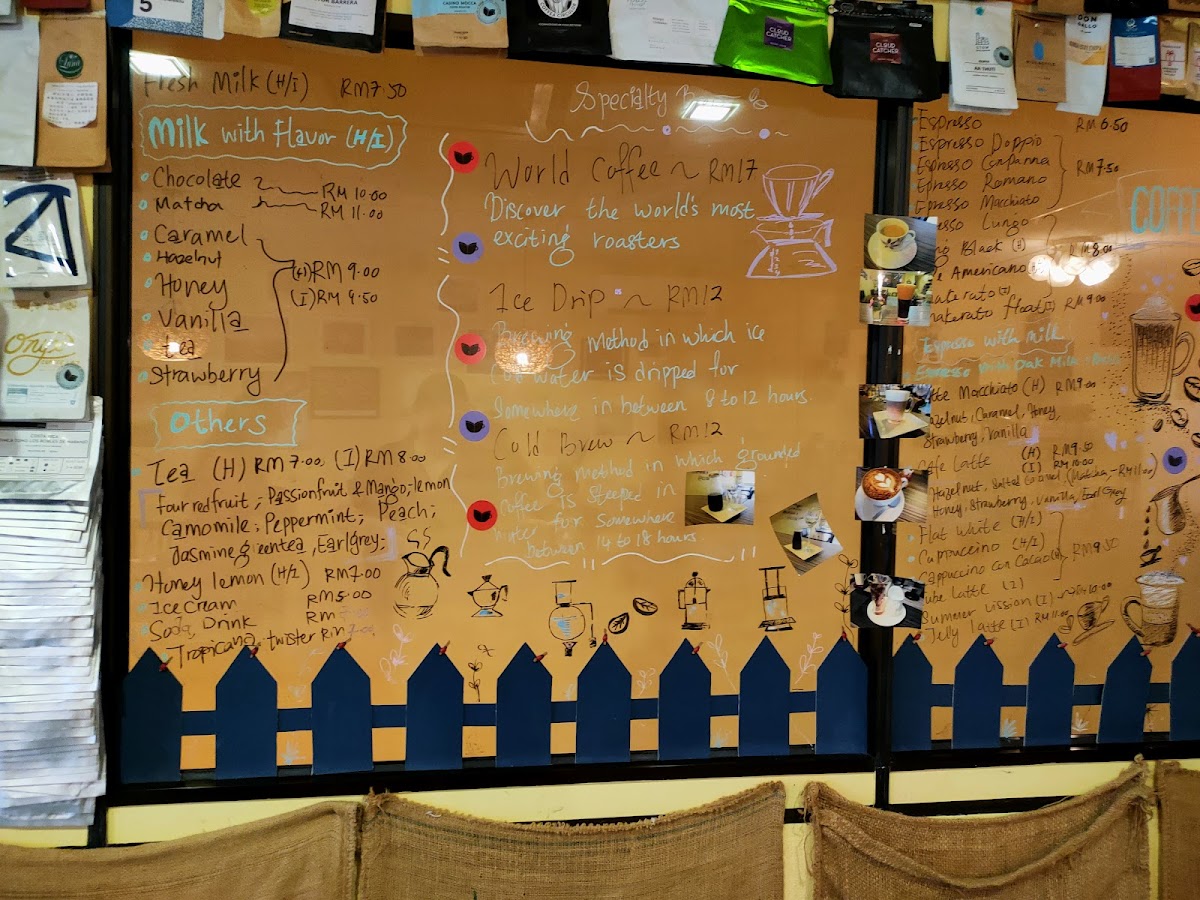 5
CASINO MOCCA
CLOUD CATCHER
CLOUD CATCHER
Onyx
Fresh Milk (H/I) RM7.50
Milk with Flavor (H/I)
Chocolate RM 10.00
Matcha RM 11.00
Caramel
Hazelnut
Honey
Vanilla
tea
Strawberry
(H)RM 9.00
(I)RM 9.50
Others
Tea (H) RM 7.00, (I) RM 8.00
Four redfruit; Passionfruit & Mango; lemon
Camomile; Peppermint; Peach;
Jasmine greentea, Earlgrey.
Honey lemon (H/I) RM7.00
Ice Cream RM5.00
Soda, Drink RM
Tropicana twister RM7.00
Specialty
World Coffee ~ RM17
Discover the world's most
exciting roasters
Ice Drip ~ RM12
Brewing method in which ice
cold water is dripped for
Somewhere in between 8 to 12 hours.
Cold Brew ~ RM12
Brewing method in which grounded
Coffee is steeped in
water for Somewhere
between 14 to 18 hours.
Espresso RM 6.50
Espresso Doppio
Espresso Conpanna
Espresso Romano
Espresso Macchiato
RM 7.50
Lungo
Black (H)
Americano
RM 8.00
float(I) RM 9.00
Espresso with milk
Espresso with Oak Milk
Macchiato (H) RM9.00
Hazelnut, Caramel, Honey,
Strawberry, Vanilla
Latte (H) RM9.50
(I) RM 10.00
Hazelnut, Salted Caramel (Matcha - RM11.00)
Honey, Strawberry, Vanilla, Earl Grey
Flat White (H/I)
Cappuccino (H/I)
Cappuccino con Cacao
RM 9.50
latte (I)
Summer vission (I) RM10.00
Jelly latte (I) RM 11.00
COFF